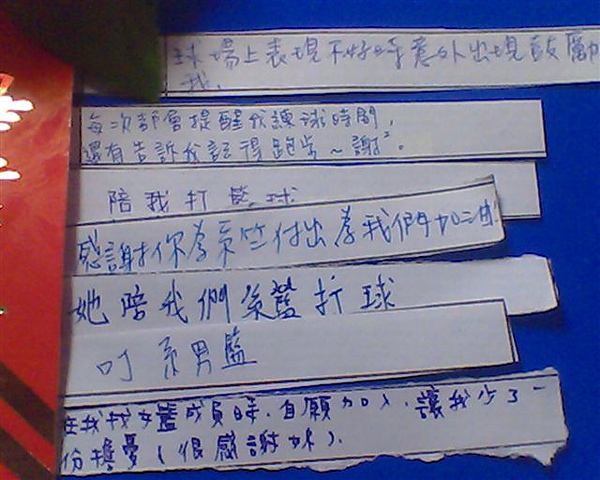 球場上表現不好時意外出現鼓勵
我.
每次都會提醒我練球時間,
還有告訴我記得跑步~謝².
陪我打籃球
感謝你為系竺付出為我們加油!
她陪我們系籃打球
叮系男籃
在我找女籃成員時.自願加入.讓我少了一
份擔憂(很感謝妳).